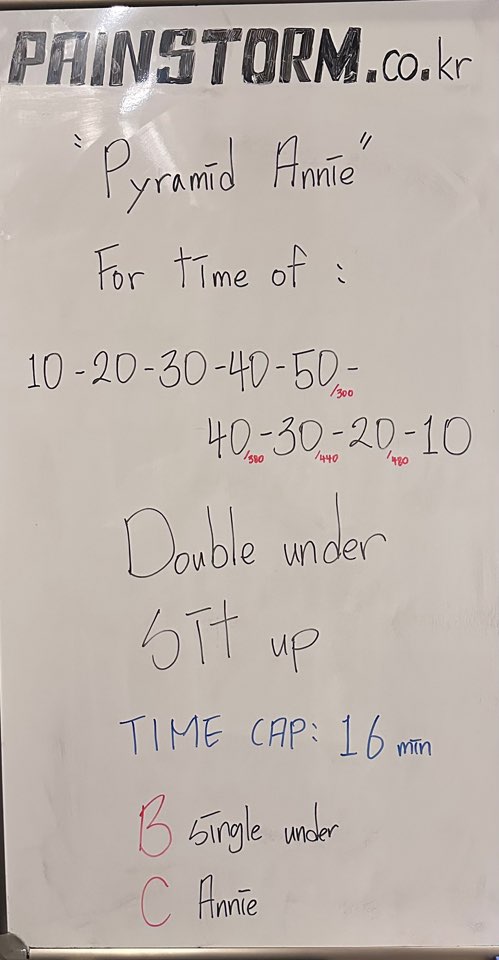 PAINSTORM.co.kr
"Pyramid Annie"
For time of :
10-20-30-40-50-
/300
40-30-20-10
/380 /440 /480
Double under
Sit up
TIME CAP: 16 min
B single under
C Annie